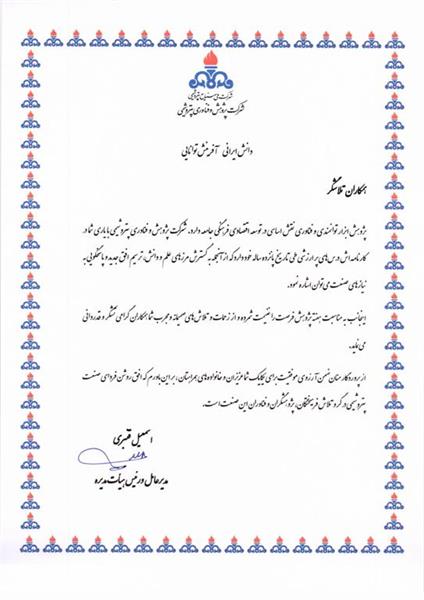 شرکت ملی صنایع پتروشیمی
شرکت پژوهش و فناوری پتروشیمی
دانش ایرانی آفرینش توانایی
همکاران تلاشگر
پژوهش ابزار توانمندی و فناوری نقش اساسی در توسعه اقتصادی فرهنگی جامعه دارد، شرکت پژوهش و فناوری پتروشیمی با یاری شما در
کارنامه اش درس های پر ارزشی طی تاریخ پانزده ساله خود دارد که از آنجمله به گسترش مرزهای علم و دانش، ترسیم افق جدید و پاسخگویی به
نیازهای صنعت می توان اشاره نمود.
اینجانب به مناسبت هفته پژوهش فرصت را غنیمت شمرده و از زحمات و تلاش های صمیمانه و مجرب شما همکاران گرامی تشکر و قدردانی
می نماید.
از پروردگار منان ضمن آرزوی موفقیت برای یکایک شما عزیزان و خانواده های همراهتان، بر این باورم که افق روشن فردای صنعت
پتروشیمی در گرو تلاش فرهیختگان، پژوهشگران و فناوران این صنعت است.
اسمعیل قنبری
مدیرعامل و رئیس هیأت مدیره